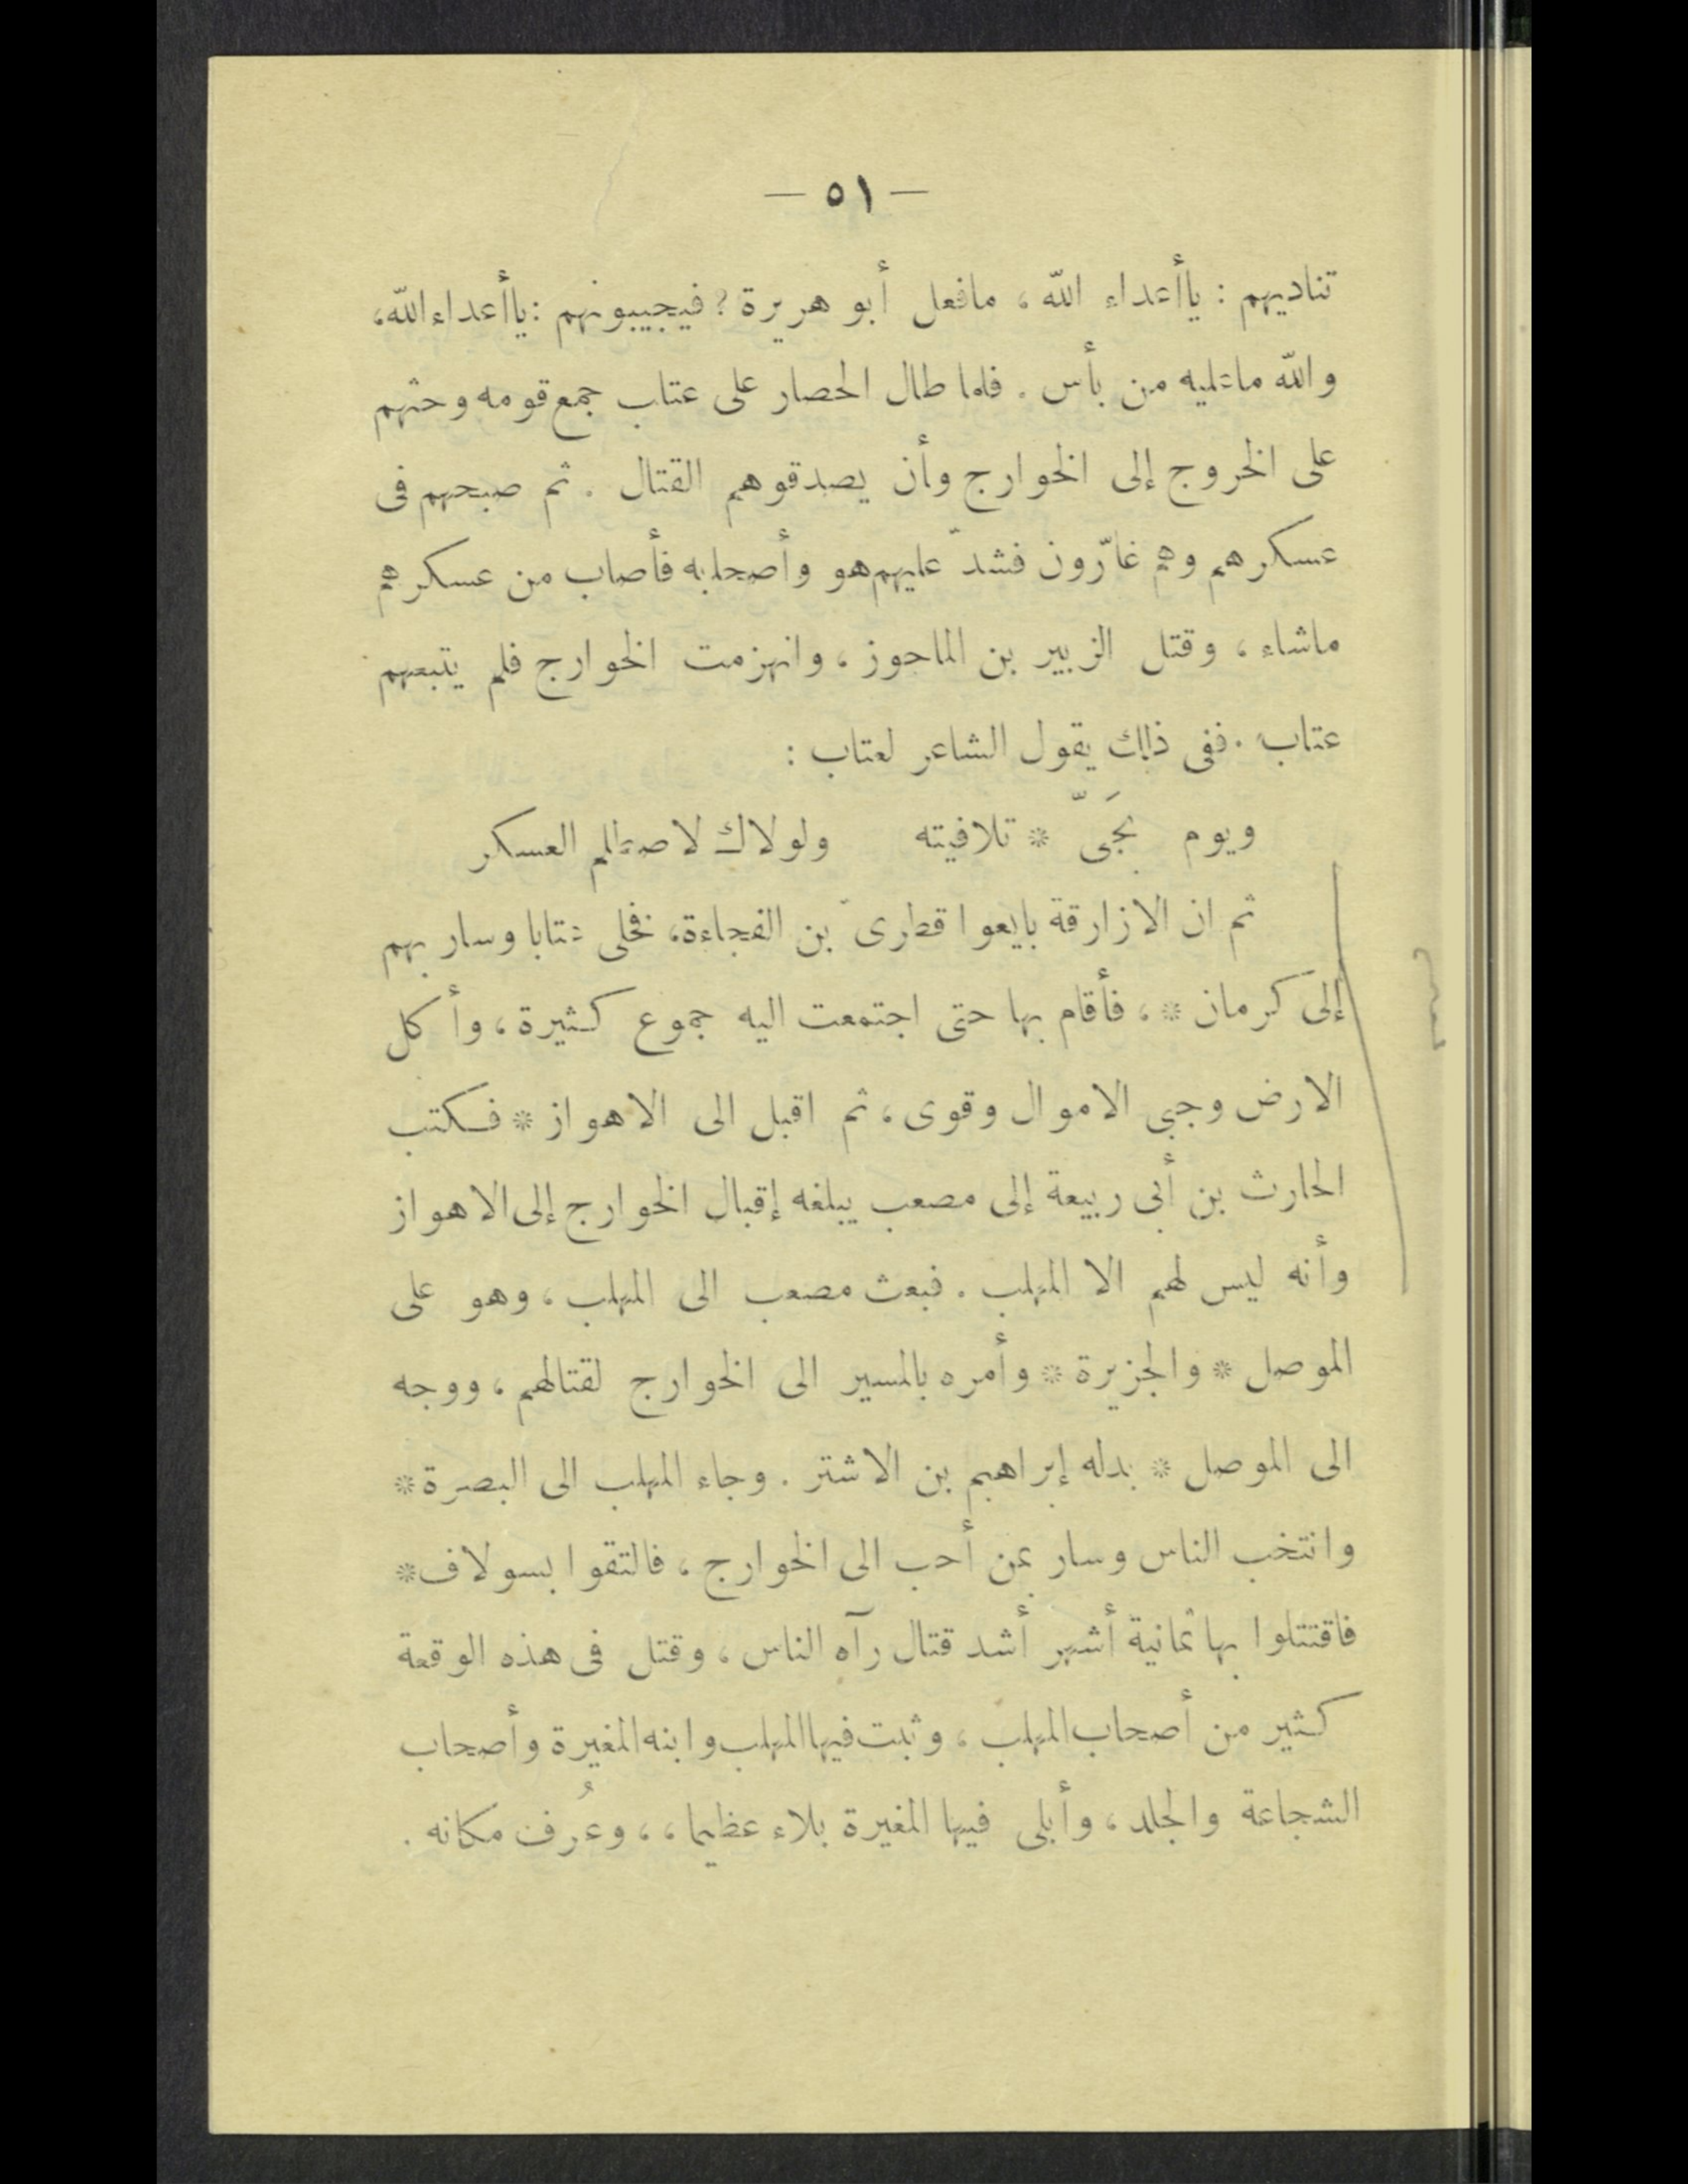 — ٥١ —
تناديهم : ياأعداء الله ، مافعل أبو هريرة ؟ فيجيبونهم : ياأعداء الله،
والله ماعليه من بأس . فلما طال الحصار على عتاب جمع قومه وحثهم
على الخروج إلى الخوارج وأن يصدقوهم القتال . ثم صبحهم فى
عسكرهم وهم غارّون فشدّ عليهم هو وأصحابه فأصاب من عسكرهم
ماشاء ، وقتل الزبير بن الماحوز ، وانهزمت الخوارج فلم يتبعهم
عتاب . ففى ذلك يقول الشاعر لعتاب :
ويوم بجَىّ * تلافيته ولولاك لاصطلم العسكر
ثم ان الازارقة بايعوا قطرىّ بن الفجاءة، فخلى عتابا وسار بهم
إلى كرمان * ، فأقام بها حتى اجتمعت اليه جموع كثيرة ، وأكل
الارض وجبى الاموال وقوى ، ثم اقبل الى الاهواز * فكتب
الحارث بن أبى ربيعة إلى مصعب يبلغه إقبال الخوارج إلى الاهواز
وأنه ليس لهم الا المهلب . فبعث مصعب الى المهلب ، وهو على
الموصل * والجزيرة * وأمره بالمسير الى الخوارج لقتالهم ، ووجه
الى الموصل * بدله إبراهيم بن الاشتر . وجاء المهلب الى البصرة *
وانتخب الناس وسار بمن أحب الى الخوارج ، فالتقوا بسولاف *
فاقتتلوا بها ثمانية أشهر أشد قتال رآه الناس ، وقتل فى هذه الوقعة
كثير من أصحاب المهلب ، وثبت فيها المهلب وابنه المغيرة وأصحاب
الشجاعة والجلد ، وأبلى فيها المغيرة بلاء عظيما ، ، وعُرف مكانه .